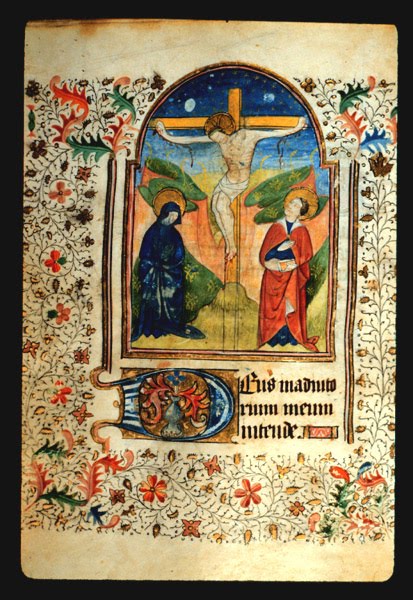 DEus in adiuto
rium meum
intende.